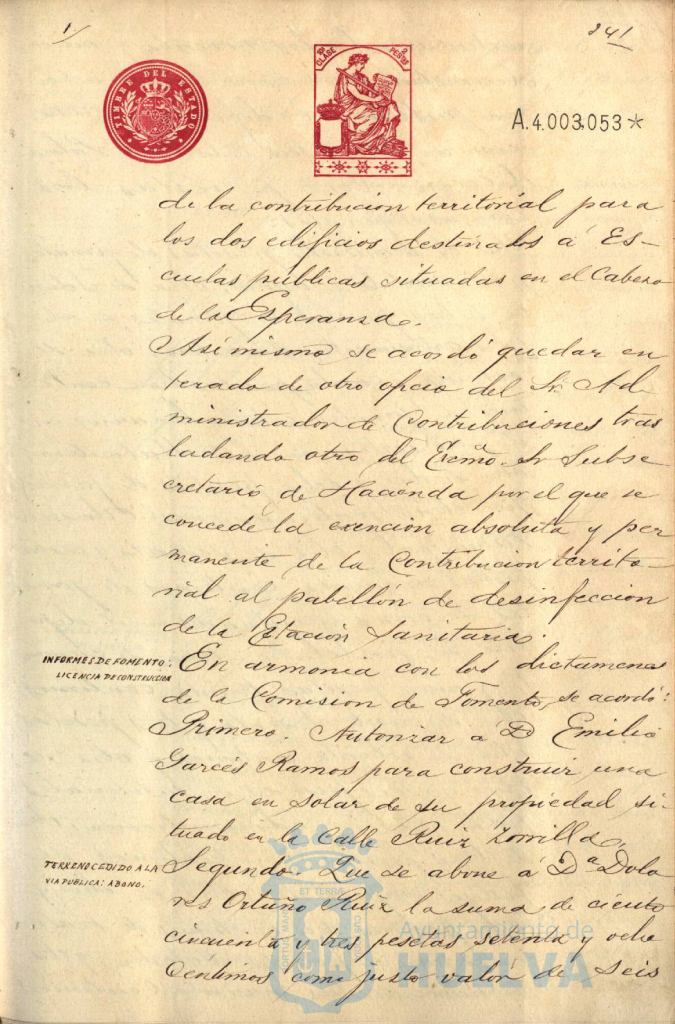 1/
241
TIMBRE DEL ESTADO
8ª CLASE 2 PESETAS
A.4.003,053*
de la contribucion territorial para
los dos edificios destinados á Es-
cuelas publicas situadas en el Cabezo
de la Esperanza.
Asi mismo se acordó quedar en
terado de otro oficio del Sr. Ad
ministrador de Contribuciones tras
ladando otro del Excmo. Sr Subse
cretario de Hacienda por el que se
concede la exencion absoluta y per
manente de la Contribucion territo-
rial al pabellón de desinfeccion
de la Estación Sanitaria.
INFORMES DE FOMENTO:
LICENCIA DE CONSTRUCCION
En armonia con los dictamenes
de la Comision de Fomento, se acordó:
Primero. Autorizar á D Emilio
Garcés Ramos para construir una
casa en solar de su propiedad si-
tuado en la Calle Ruiz Zorrilla.
TERRENO CEDIDO A LA
VIA PUBLICA: ABONO.
Segundo. Que se abone á Dª Dolo
res Ortuño Ruiz la suma de ciento
cincuenta y tres pesetas setenta y ocho
Centimos como justo valor de seis
ET TERRÆ
Ayuntamiento de
HUELVA